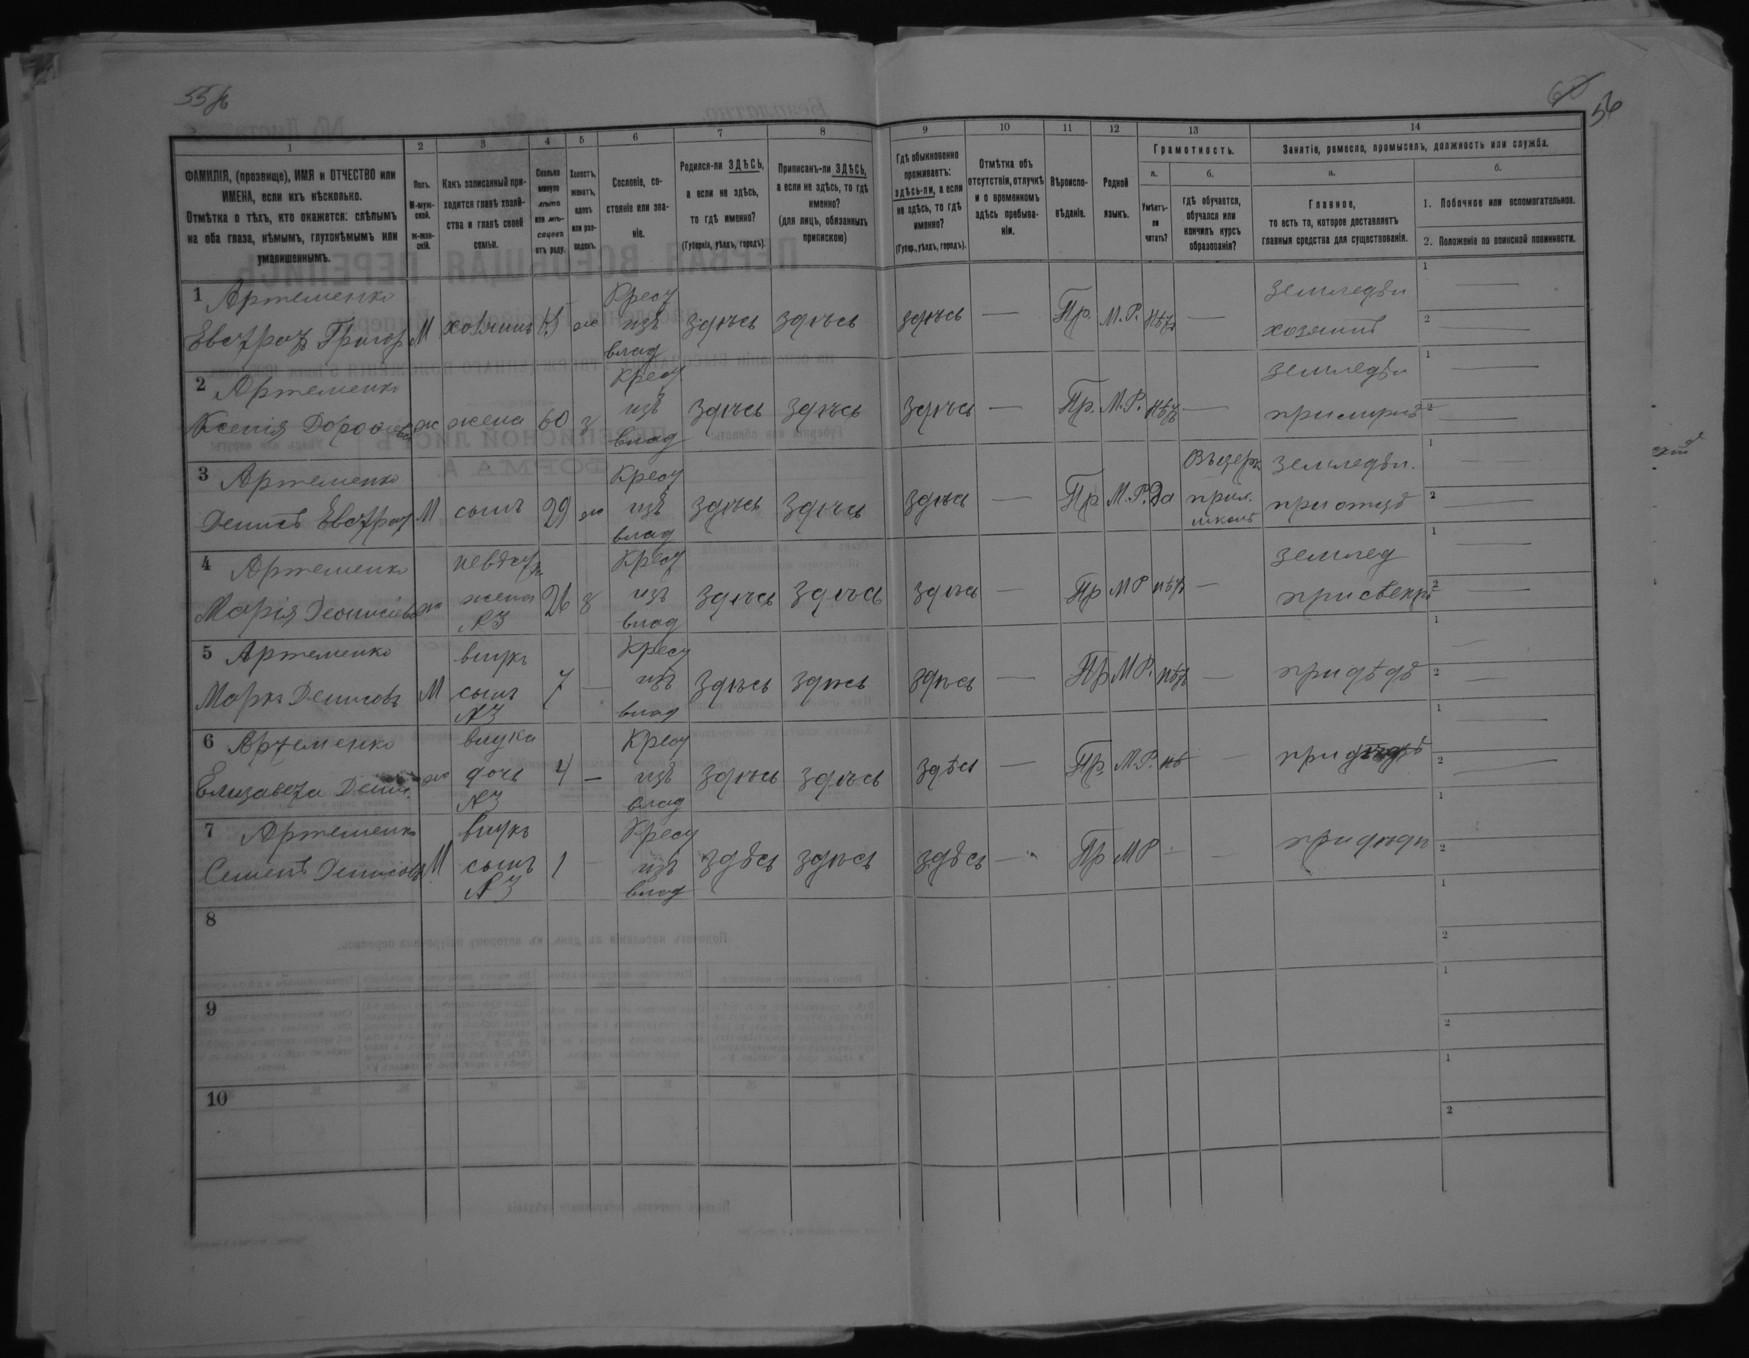 60
56
1
2
3
4
5
6
7
8
9
10
11
12
13
14
ФАМИЛІЯ, (прозвище), ИМЯ и ОТЧЕСТВО или ИМЕНА, если ихъ нѣсколько.
Отмѣтка о тѣхъ, кто окажется: слѣпымъ на оба глаза, нѣмымъ, глухонѣмымъ или умалишеннымъ.
Полъ.
М-мужской.
ж-женскій.
Какъ записанный приходится главѣ хозяйства и главѣ своей семьи.
Сколько минуло лѣтъ или мѣсяцевъ отъ роду.
Холостъ, женатъ, вдовъ или разведенъ.
Сословіе, состояніе или званіе.
Родился-ли ЗДѢСЬ, а если не здѣсь, то гдѣ именно?
(Губернія, уѣздъ, городъ).
Приписанъ-ли ЗДѢСЬ, а если не здѣсь, то гдѣ именно?
(для лицъ, обязанныхъ припискою)
Гдѣ обыкновенно проживаетъ: здѣсь-ли, а если не здѣсь, то гдѣ именно?
(Губер., уѣздъ, городъ).
Отмѣтка объ отсутствіи, отлучкѣ и о временномъ здѣсь пребываніи.
Вѣроисповѣданіе.
Родной языкъ.
Грамотность.
а.
Умѣетъ-ли читать?
б.
гдѣ обучается, обучался или кончилъ курсъ образованія?
Занятіе, ремесло, промыселъ, должность или служба.
а.
Главное,
то есть то, которое доставляетъ главныя средства для существованія.
б.
1. Побочное или вспомогательное.
2. Положеніе по воинской повинности.
1 Артеменко
Евстрат Григор М хозяинъ Крест изъ влад здѣсь здѣсь здѣсь — Пр. М.Р. нѣтъ — земледѣл хозяинъ 1 — 2 —
2 Артеменко
Ксенія ж жена 60 з Крест изъ влад здѣсь здѣсь здѣсь — Пр. М.Р. нѣтъ — земледѣл 1 — 2 —
3 Артеменко
Денисъ Евстрат М сынъ 29 Крест изъ влад здѣсь здѣсь здѣсь — Пр М.Р. да прих. школѣ земледѣл. при отцѣ 1 — 2 —
4 Артеменко
Марія ж жена №3 26 з Крест изъ влад здѣсь здѣсь здѣсь — Пр М Р. нѣтъ — землед при свекрѣ 1 — 2 —
5 Артеменко
Маркъ Денисовъ М внукъ сынъ №3 7 — Крест изъ влад здѣсь здѣсь здѣсь — Пр М Р. нѣтъ — при дѣдѣ 1 — 2 —
6 Артеменко
Елизавета Денис. ж внука дочь №3 4 — Крест изъ влад здѣсь здѣсь здѣсь — Пр. М.Р. нѣ — при дѣдѣ 1 — 2 —
7 Артеменко
Семенъ Денисовъ М внукъ сынъ №3 1 — Крест изъ влад здѣсь здѣсь здѣсь — Пр М Р — — при дѣдѣ 1 2
8 1 2
9 1 2
10 1 2